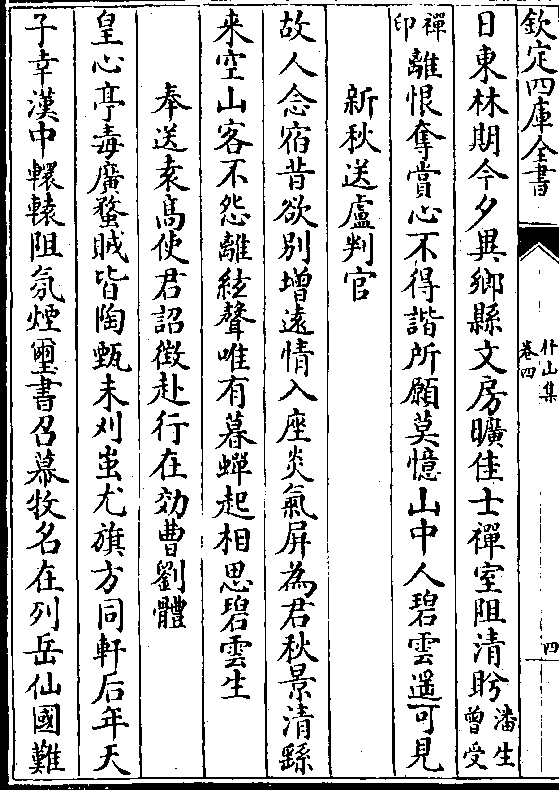 欽定四庫全書
杼山集
卷四
四
日東林期今夕異鄉縣文房曠佳士禪室阻清眄潘生曾受
禪印離恨奪賞心不得諧所願莫憶山中人碧雲遥可見
新秋送盧判官
故人念宿昔欲别增遠情入座炎氣屏為君秋景清繇
来空山客不怨離絃聲唯有暮蟬起相思碧雲生
奉送袁髙使君詔徵赴行在効曹劉體
皇心亭毒廣蝥賊皆陶甄未刈蚩尤旗方同軒后年天
子幸漢中轘轅阻氛煙璽書召幕牧名在列岳仙國難